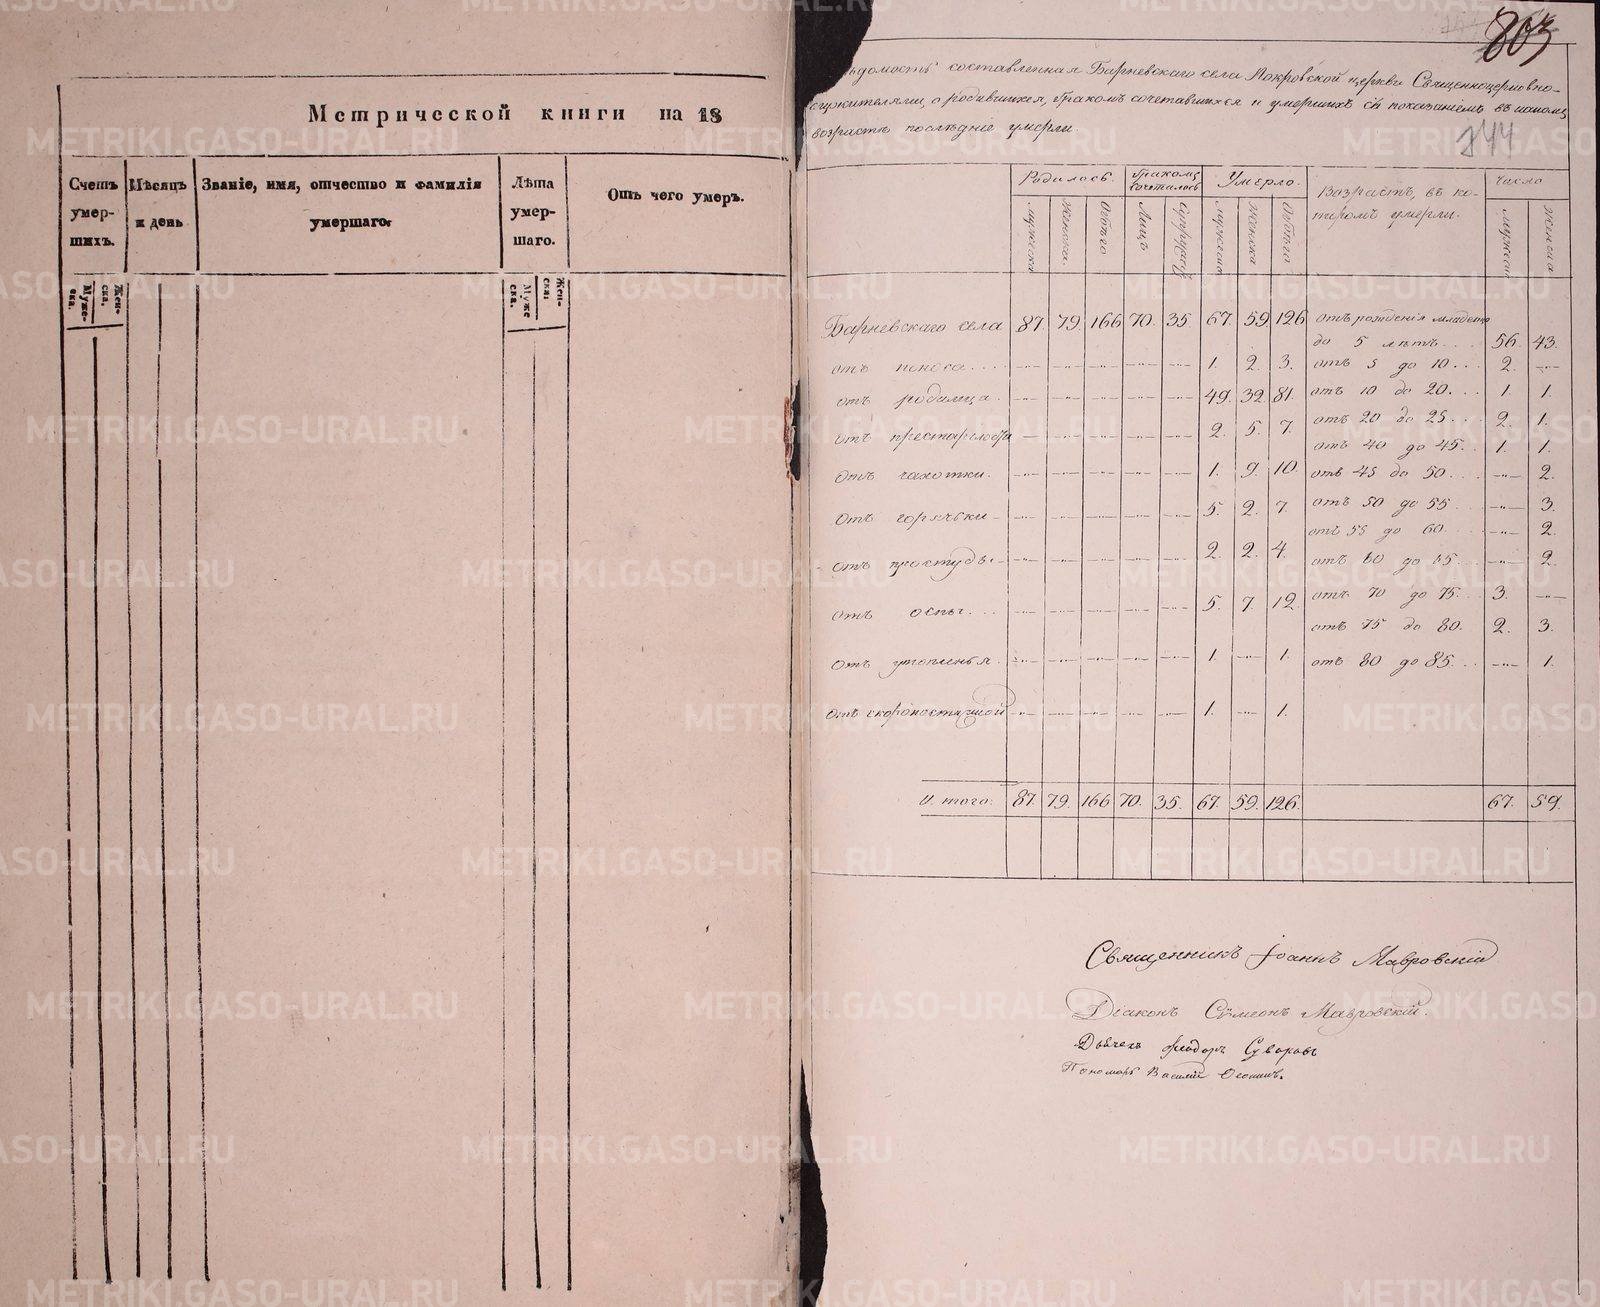 Метрической книги на 18
Счетъ умер-шихъ. Мѣсяцъ и день Званіе, имя, отчество и фамилія умершаго. Лѣта умер-шаго. Отъ чего умеръ.
Муже-ска. Жен-ска. Муже ска. Жен-ска.
803
144
ѣдомость составленная Барневскаго села Покровской церкви Священноцерковно-
служителями, о родившихся, бракомъ сочетавшихся и умершихъ съ показаніемъ въ какомъ
возрастѣ послѣдніе умерли.
Родилось. Бракомъ сочеталось Умерло. Возрастъ, въ ко-торомъ умерли. Число
Мужеска Женска. Обоего Лицъ Супруж. Мужеска Женска Обоего Мужеска Женска
Барневскаго села 87. 79. 166 70. 35. 67. 59. 126 отъ рожденія младенц.
до 5 лѣтъ... 56. 43.
отъ поноса.... 1. 2. 3. отъ 5 до 10... 2. —
отъ родимца. 49. 32. 81. отъ 10 до 20... 1. 1.
отъ 20 до 25... 2. 1.
отъ престарѣлости 2. 5. 7. отъ 40 до 45. 1. 1.
отъ чахотки. 1. 9. 10. отъ 45 до 50... — 2.
отъ горячки 5. 2. 7. отъ 50 до 55... — 3.
отъ 55 до 60... — 2.
отъ простуды. 2. 2. 4. отъ 60 до 65... — 2.
отъ оспы... 5. 7. 12. отъ 70 до 75... 3. —
отъ 75 до 80. 2. 3.
отъ утопленья. 1. — 1. отъ 80 до 85... — 1.
отъ скоропостижной 1. — 1.
И того. 87. 79. 166 70. 35. 67. 59. 126. 67. 59.
Священникъ Іоаннъ Мавровскій
Діаконъ Сѵмеонъ Мавровскій.
Дьячекъ Феодоръ Суворовъ
Пономарь Василій
METRIKI.GASO-URAL.RU